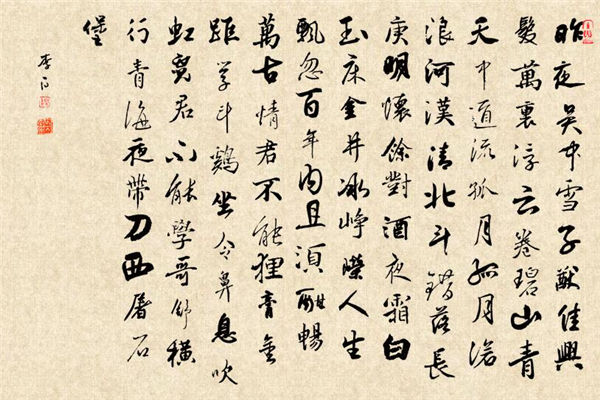 昨夜吴中雪子猷佳興
髮萬裏浮云卷碧山青
天中道流孤月孤月滄
浪河漢清北斗錯落長
庚明懷餘對酒夜霜白
玉床金井冰崢嶸人生
飄忽百年内且須酣暢
萬古情君不能狸膏金
距学斗鷄坐令鼻息吹
虹霓君不能學哥舒横
行青海夜帶刀西屠石
堡
李白